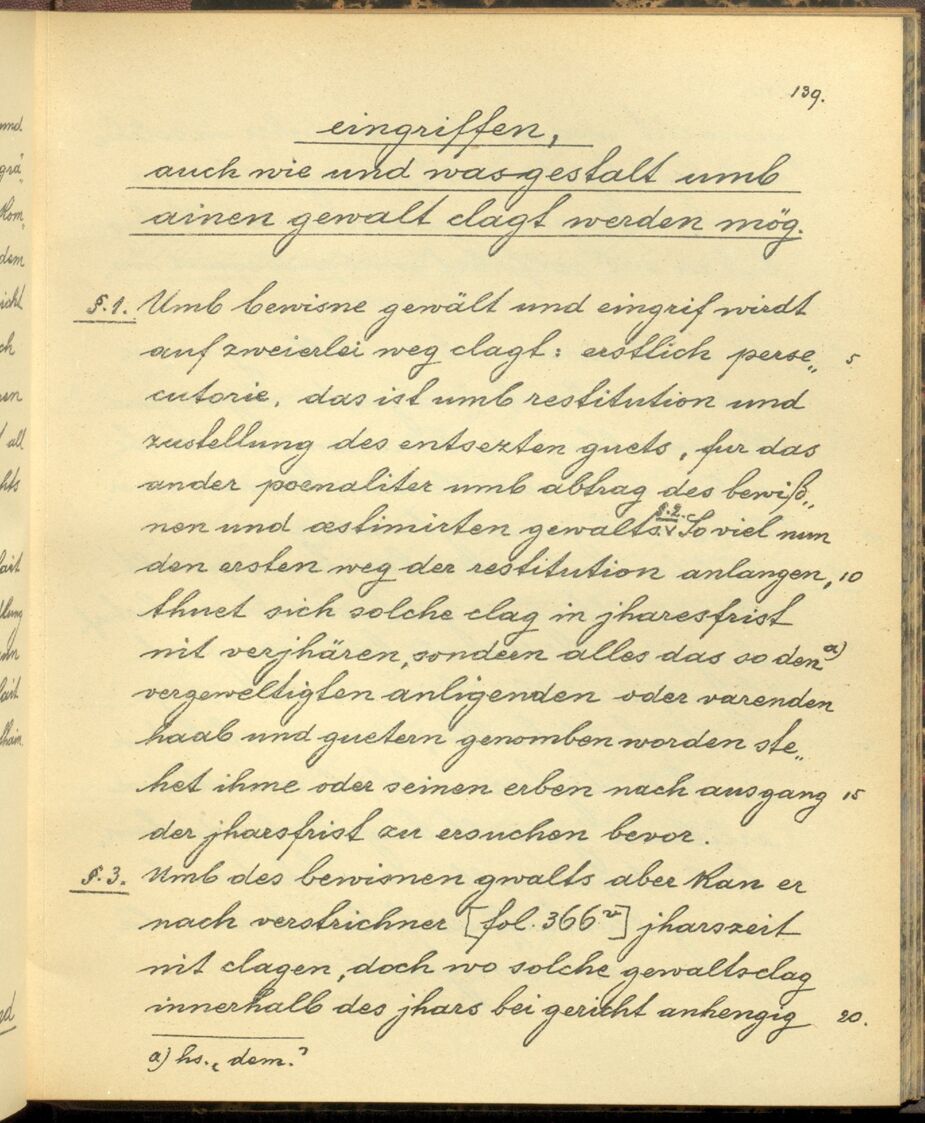 139.
eingriffen,
auch wie und wasgestalt umb
ainen gewalt clagt werden mög.
§.1. Umb bewisne gewält und eingrif wirdt
auf zweierlei weg clagt: erstlich perse„ 5
cutorie, das ist umb restitution und
zustellung des entsezten guets, fur das
ander poenaliter umb abtrag des bewiß„
nen und æstimirten gewalts. §.2. So viel nun
den ersten weg der restitution anlangen, 10
thuet sich solche clag in jharesfrist
nit verjhären, sondern alles das so den a)
vergeweltigten anligenden oder varenden
haab und guetern genomben worden ste„
het ihme oder seinen erben nach ausgang 15
der jharsfrist zu ersuchen bevor.
§.3. Umb des bewisnen gwalts aber kan er
nach verstrichner [fol. 366 v] jharszeit
nit clagen, doch wo solche gewaltsclag
innerhalb des jhars bei gericht anhengig 20.
a) hs. „dem."